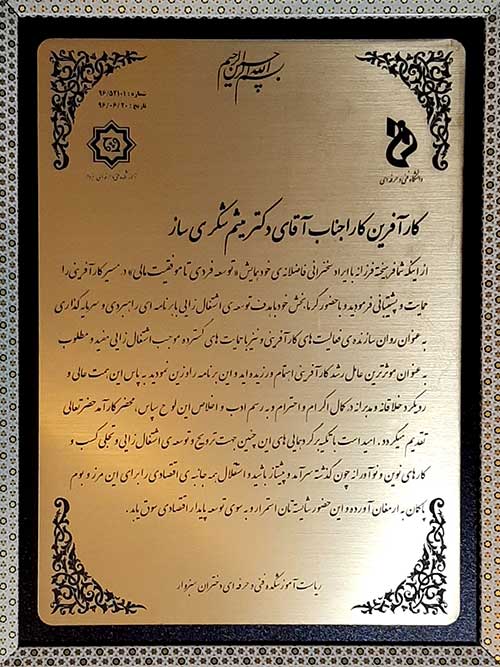 بسم الله الرحمن الرحیم
شماره : ۹۶/۵۲۱۰۱
تاریخ : ۹۶/۰۶/۲۰
دانشگاه فنی و حرفه ای
کارآفرین کارا جناب آقای دکتر میثم شکری ساز
از اینکه شما فریخته فرزانه با ایراد سخنرانی فاضلانه ی خود همایش «توسعه فردی تا موفقیت مالی» در مسیر کارآفرینی را
حمایت و پشتیبانی فرمودید و با حضور گرما بخش خود با هدف توسعه ی اشتغال زایی با برنامه ای راهبردی و سرمایه گذاری
به عنوان روان سازنده ی فعالیت های کارآفرینی و نیز با حمایت های گسترده موجب اشتغال زایی مفید و مطلوب
به عنوان موثرترین عامل رشد کارآفرینی اهتمام ورزیده اید و این برنامه را وزین نمودید به پاس این همت عالی و
رویکرد خلاقانه و مدبرانه در کمال اکرام و احترام و به رسم ادب و اخلاص این لوح سپاس، محضر کارآمد حضرتعالی
تقدیم میگردد. امید است با تکیه بر گردهمایی های این چنین جهت ترویج و توسعه ی اشتغال زایی و تجلی کسب و
کارهای نوین و نوآورانه چون گذشته سرآمد و پیشتاز باشید و استقلال همه جانبه ی اقتصادی را برای این مرز و بوم
پاکان به ارمغان آورده و این حضور شایسته تان استمرار و به سوی توسعه پایدار اقتصادی سوق یابد.
ریاست آموزشکده فنی و حرفه ای دختران سبزوار